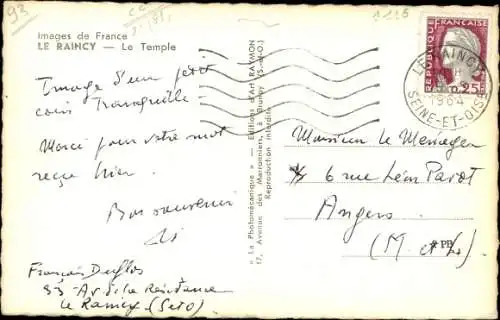 93
Images de France
LE RAINCY — Le Temple
Image d'un petit
coin Tranquille
Merci pour votre mot
reçu hier.
Bon souvenir
François
33 - Av de la Résistance
Le Raincy (S et O)
« La Photomécanique » — Editions d'Art RAYMON
17, Avenue des Marronniers, à Brunoy (S.-et-O.)
Reproduction interdite
REPUBLIQUE FRANÇAISE
0,25
LE RAINCY
1964
SEINE-ET-OISE
Monsieur Le Menager
6 rue Léon Pavot
Angers
(M et L)